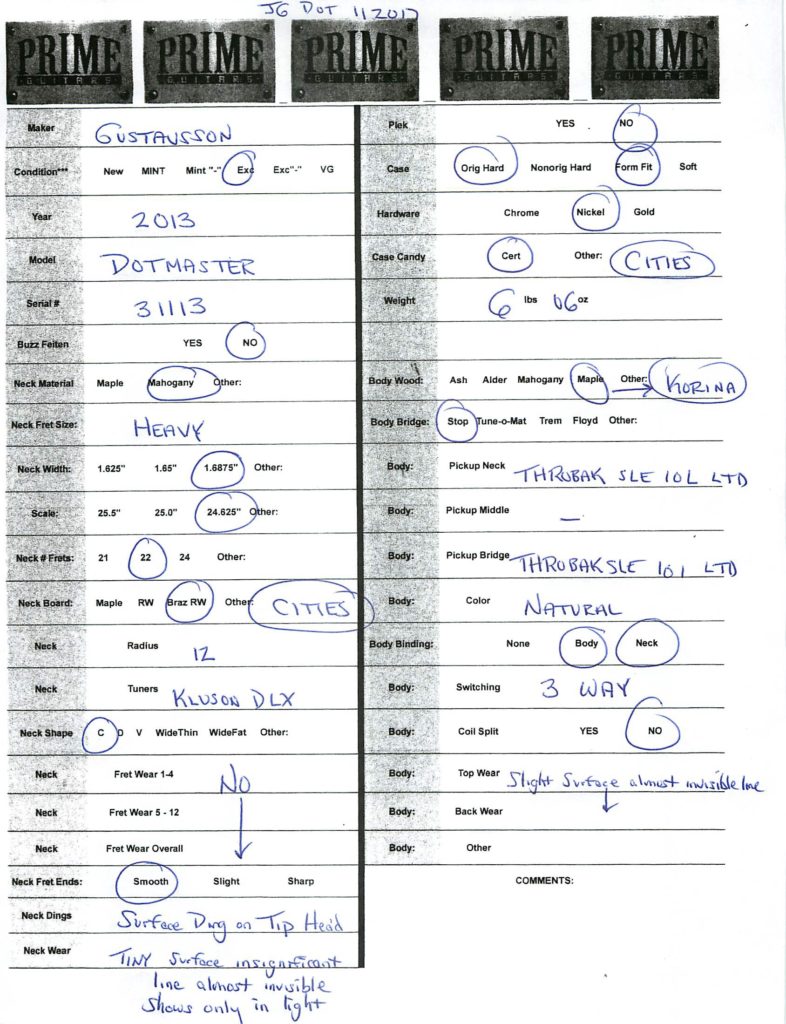 JG DOT 112017
PRIME GUITARS PRIME GUITARS PRIME GUITARS PRIME GUITARS PRIME GUITARS
Maker GUSTAVSSON
Condition*** New MINT Mint "-" Exc Exc"-" VG
Year 2013
Model DOTMASTER
Serial # 31113
Buzz Feiten YES NO
Neck Material Maple Mahogany Other:
Neck Fret Size: HEAVY
Neck Width: 1.625" 1.65" 1.6875" Other:
Scale: 25.5" 25.0" 24.625" Other:
Neck # Frets: 21 22 24 Other:
Neck Board: Maple RW Braz RW Other: CITIES
Neck Radius 12
Neck Tuners KLUSON DLX
Neck Shape C D V WideThin WideFat Other:
Neck Fret Wear 1-4 NO
Neck Fret Wear 5 - 12
Neck Fret Wear Overall
Neck Fret Ends: Smooth Slight Sharp
Neck Dings Surface Ding on Tip Head
Neck Wear TINY Surface insignificant
line almost invisible
Shows only in light
Plek YES NO
Case Orig Hard Nonorig Hard Form Fit Soft
Hardware Chrome Nickel Gold
Case Candy Cert Other: CITIES
Weight 6 lbs 06 oz
Body Wood: Ash Alder Mahogany Maple Other: KORINA
Body Bridge: Stop Tune-o-Mat Trem Floyd Other:
Body: Pickup Neck THROBAK SLE 101 LTD
Body: Pickup Middle —
Body: Pickup Bridge THROBAK SLE 101 LTD
Body: Color NATURAL
Body Binding: None Body Neck
Body: Switching 3 WAY
Body: Coil Split YES NO
Body: Top Wear Slight Surface almost invisible line
Body: Back Wear
Body: Other
COMMENTS: